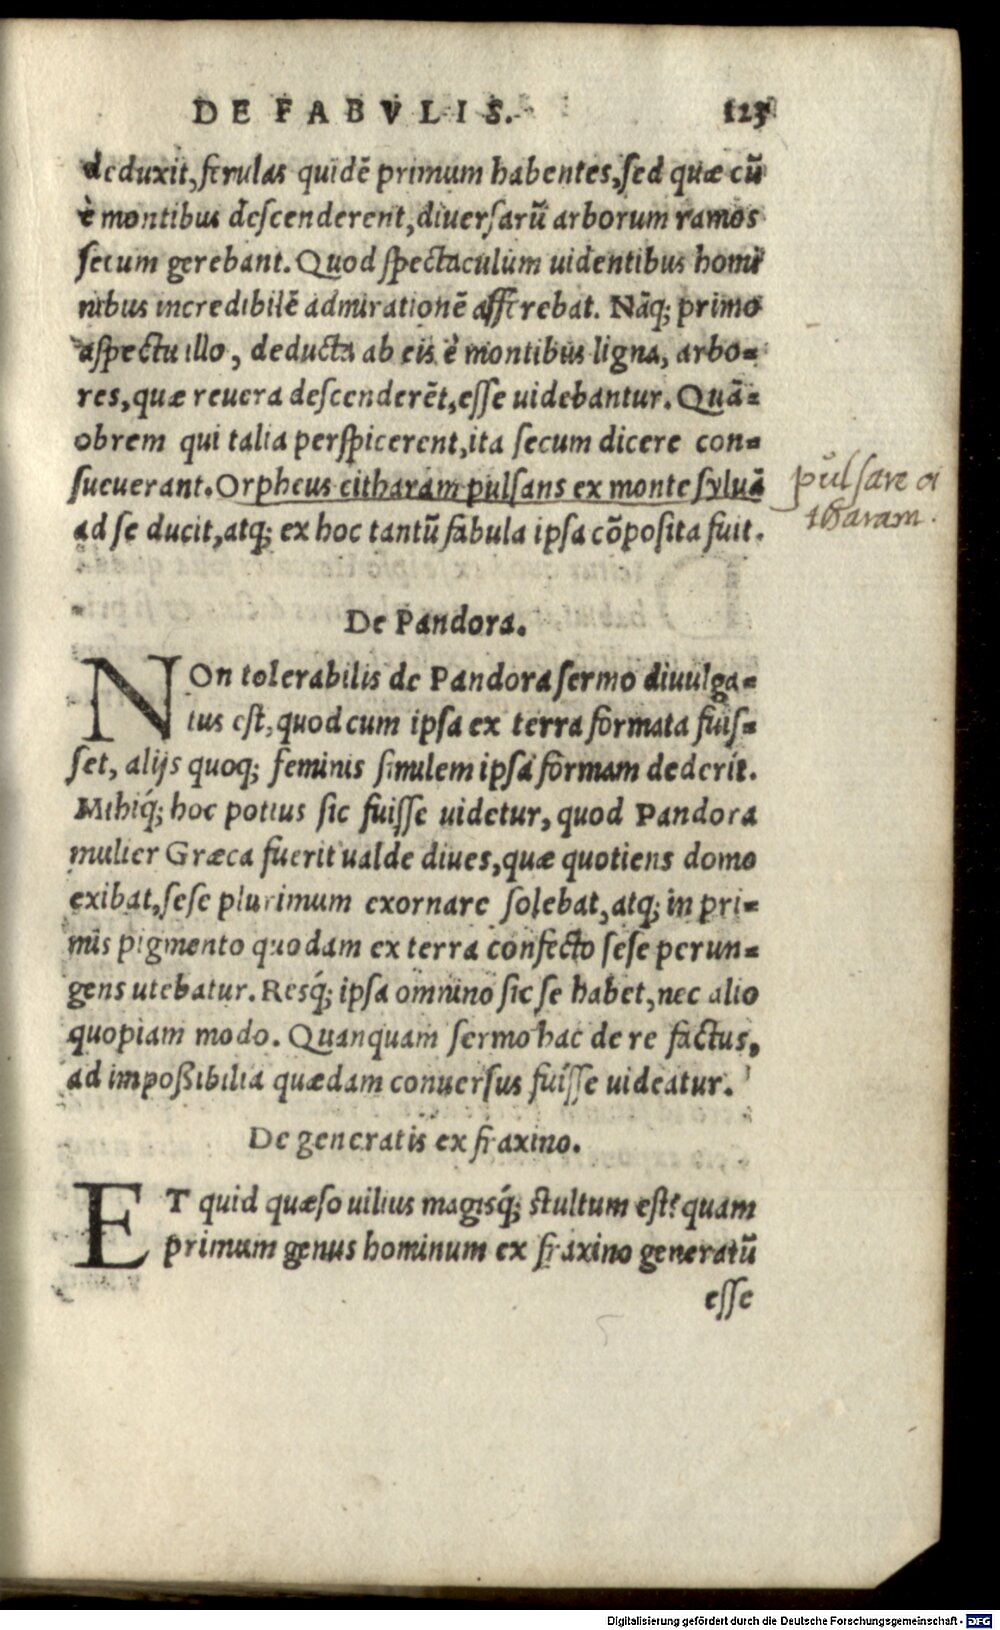 DE FABVLIS. 123
deduxit, ferulas quidē primum habentes, sed quæ cū
è montibus descenderent, diuersarū arborum ramos
secum gerebant. Quod spectaculum uidentibus homi
nibus incredibilē admirationē afferebat. Nāq; primo
aspectu illo, deducta ab eis è montibus ligna, arbo-
res, quæ reuera descenderēt, esse uidebantur. Quā-
obrem qui talia perspicerent, ita secum dicere con-
sueuerant. Orpheus citharam pulsans ex monte syluā
pulsare ci
tharam.
ad se ducit, atq; ex hoc tantū fabula ipsa cōposita fuit.
De Pandora.
NOn tolerabilis de Pandora sermo diuulga-
tus est, quod cum ipsa ex terra formata fuis-
set, alijs quoq; feminis similem ipsa formam dederit.
Mihiq́; hoc potius sic fuisse uidetur, quod Pandora
mulier Græca fuerit ualde diues, quæ quotiens domo
exibat, sese plurimum exornare solebat, atq; in pri-
mis pigmento quodam ex terra confecto sese perun-
gens utebatur. Resq́; ipsa omnino sic se habet, nec alio
quopiam modo. Quanquam sermo hac de re factus,
ad impoßibilia quædam conuersus fuisse uideatur.
De generatis ex fraxino.
ET quid quæso uilius magisq́; stultum est? quam
primum genus hominum ex fraxino generatū
esse
Digitalisierung gefördert durch die Deutsche Forschungsgemeinschaft - DFG